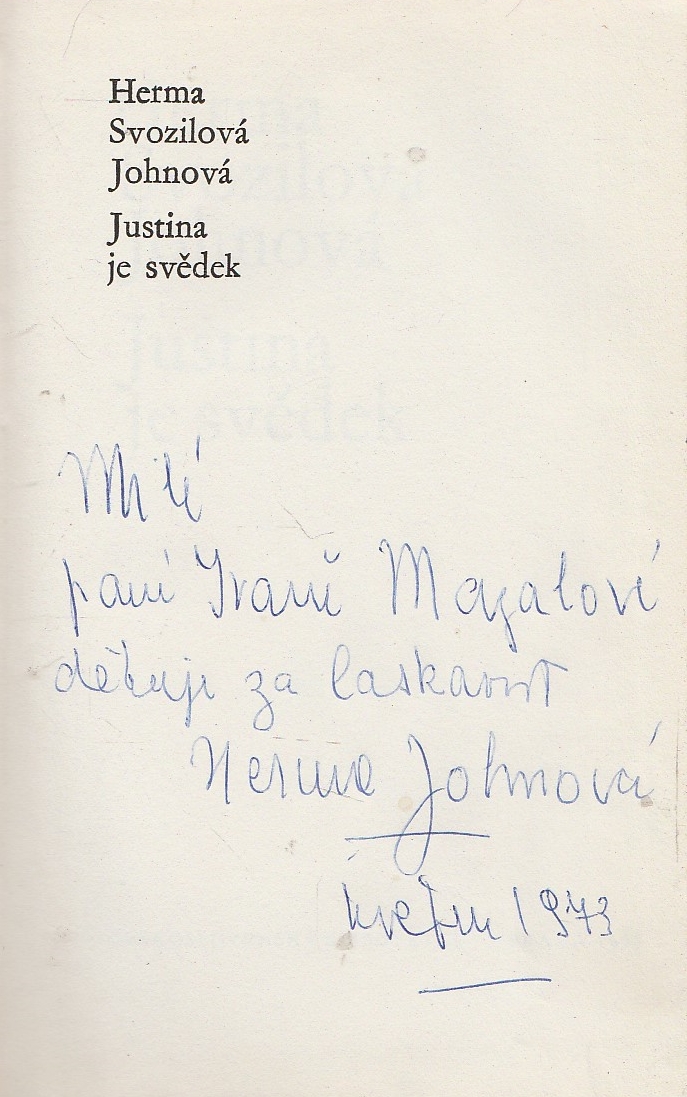 Herma
Svozilová
Johnová
Justina
je svědek
Milé
paní Ivaně Mazalové
děkuji za laskavost
Herma Johnová
květen 1973